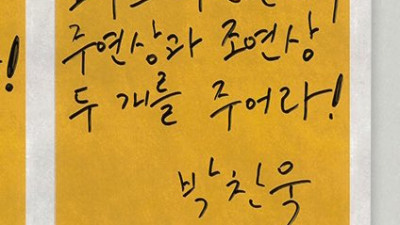 !
주연상과 조연상
두 개를 주어라!
박찬욱